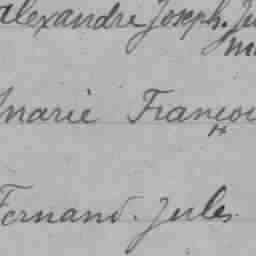 alexandre Joseph. Ju
Marie Françoi
Fernand. Jules